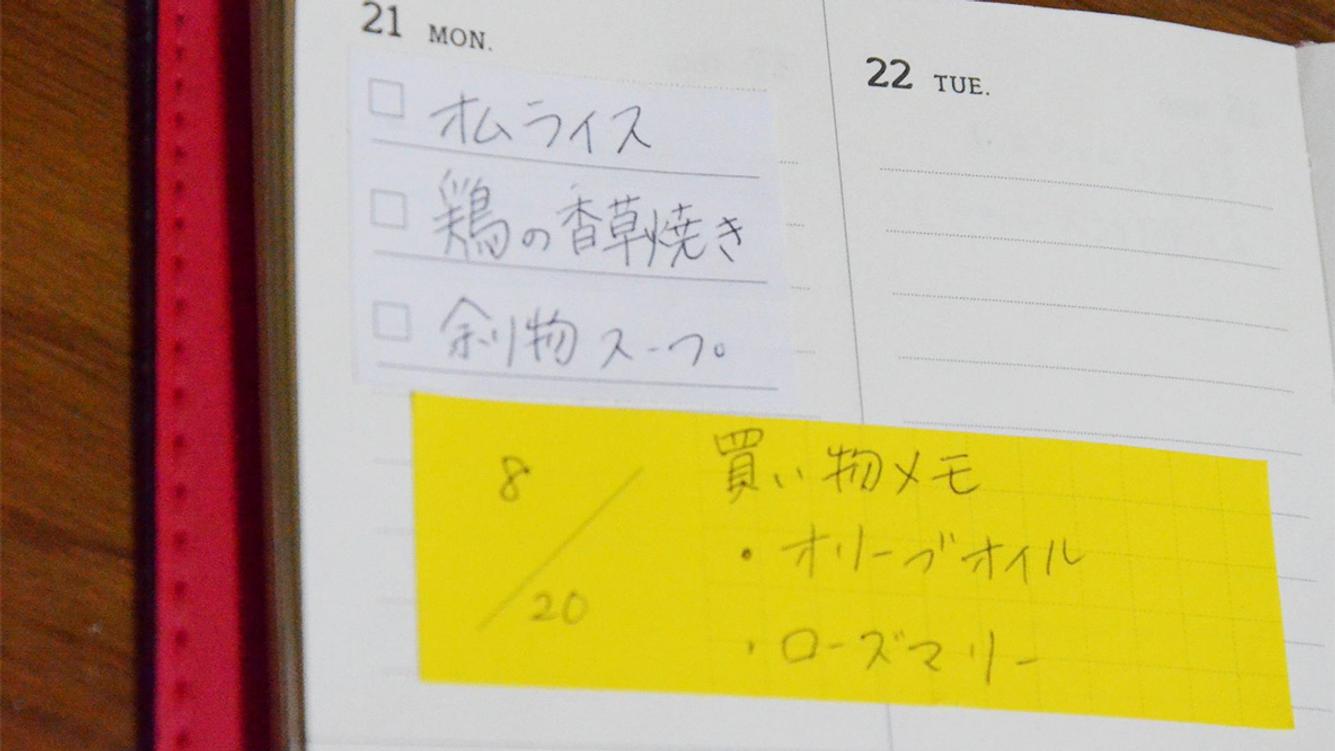 21 MON.
オムライス
鶏の香草焼き
余り物スープ
22 TUE.
8/20
買い物メモ
・オリーブオイル
・ローズマリー